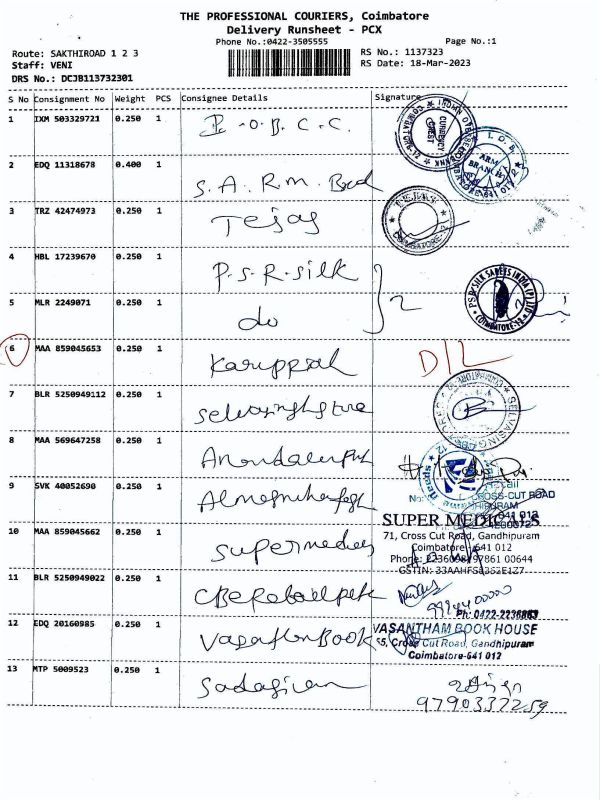 THE PROFESSIONAL COURIERS, Coimbatore
Delivery Runsheet - PCX
Phone No.:0422-3505555
Page No.:1
Route: SAKTHIROAD 1 2 3
RS No.: 1137323
Staff: VENI
RS Date: 18-Mar-2023
DRS No.: DCJB113732301
S No Consignment No Weight PCS Consignee Details Signature
1 IXM 503329721 0.250 1 I.O.B.C.C.
CURRENCY CHEST
I.O.B.
ARM BRANCH
2 EDQ 11318678 0.400 1 S.A.R.M.
3 TRZ 42474973 0.250 1 Tejas
COIMBATORE-12
4 HBL 17239670 0.250 1 P.S.R.silk
2
PSR SILK SAREES INDIA (P) LTD
COIMBATORE-12
5 MLR 2249071 0.250 1 do
6 MAA 859045653 0.250 1 Karuppiah D/L
7 BLR 5250949112 0.250 1
8 MAA 569647258 0.250 1
9 SVK 40052690 0.250 1
CROSS-CUT ROAD
641 012
10 MAA 859045662 0.250 1 Supermedicals
SUPER MEDICALS
71, Cross Cut Road, Gandhipuram
Coimbatore - 641 012
11 BLR 5250949022 0.250 1
Ph: 0422-2236863
12 EDQ 20160985 0.250 1 Vasantham Book
VASANTHAM BOOK HOUSE
Cross Cut Road, Gandhipuram
Coimbatore-641 012
13 MTP 5009523 0.250 1 Sadasivam
9790337259